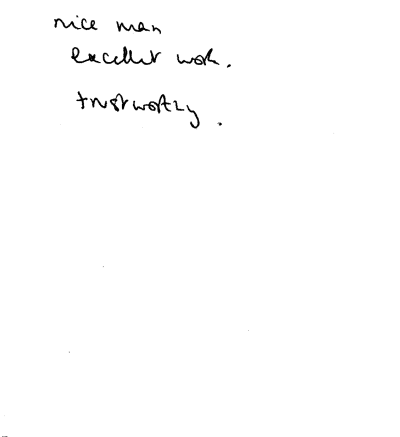 nice man
excellent work.
trustworthy.